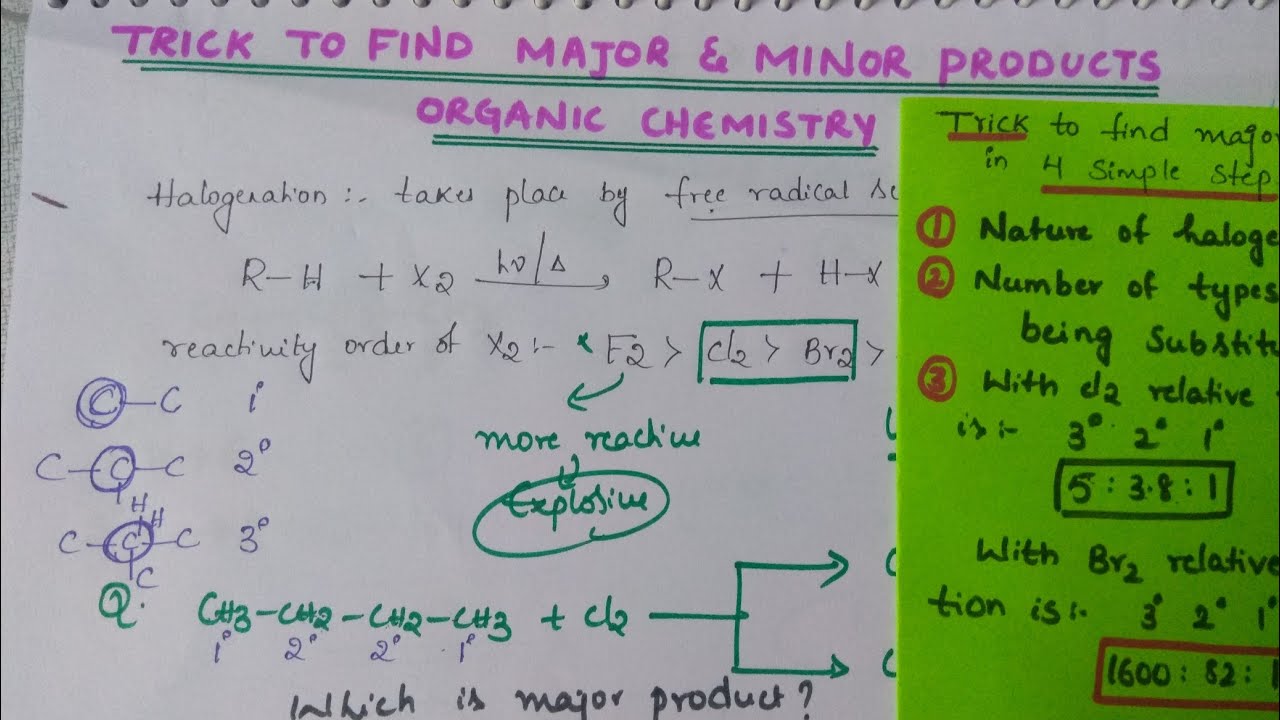 TRICK TO FIND MAJOR & MINOR PRODUCTS
ORGANIC CHEMISTRY
Halogenation :- takes place by free radical
R-H + X2 hν/Δ R-X + H-X
reactivity order of X2 :- * F2 > Cl2 > Br2 >
more reactive
Explosive
C-C 1°
C-C-C 2°
H
H
C-C-C 3°
C
Q. CH3-CH2-CH2-CH3 + Cl2
1° 2° 2° 1°
Which is major product?
Trick to find major
in 4 Simple step
① Nature of haloge
② Number of types
being Substitu
③ With Cl2 relative
is:- 3° 2° 1°
5 : 3.8 : 1
With Br2 relative
tion is:- 3° 2° 1°
1600 : 82 : 1